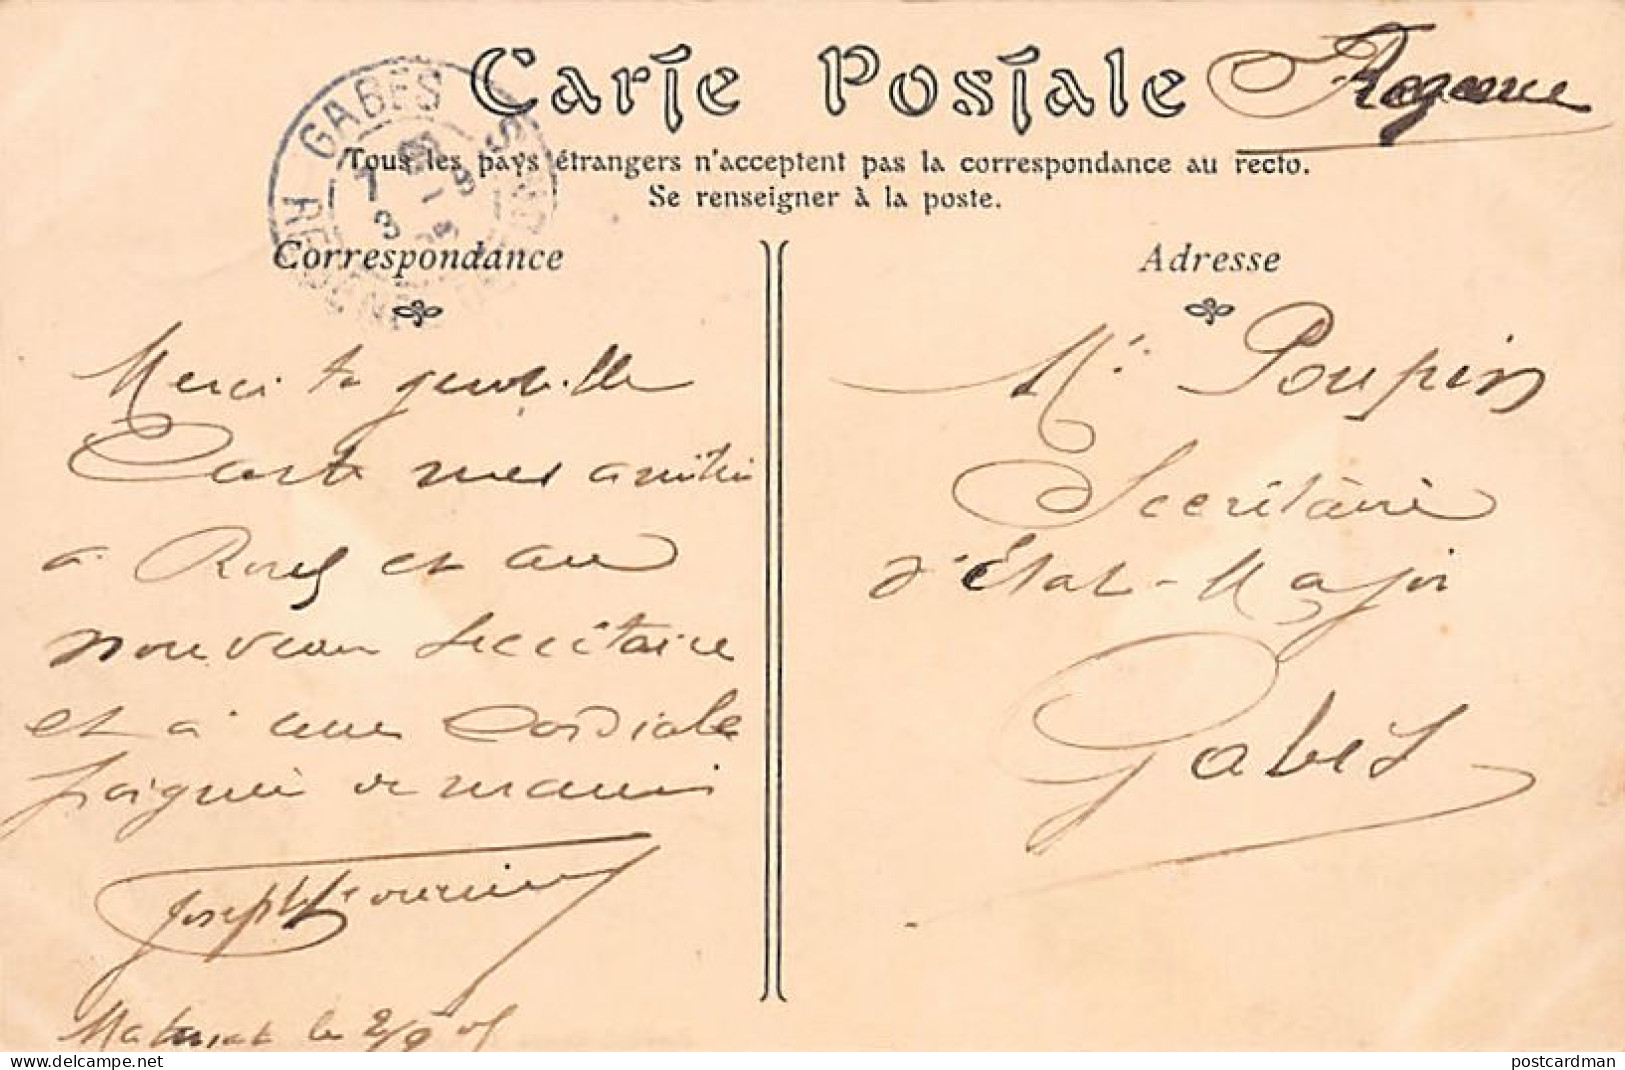 Carte Postale
Regence
Tous les pays étrangers n'acceptent pas la correspondance au recto.
Se renseigner à la poste.
GABES
Correspondance
Merci ta gentille
Carte mes amitiés
a et au
nouveau Secrétaire
et à une Cordiale
poignée de mains
Joseph
Matmat le 2/9 05
Adresse
Mr. Poupin
Secrétaire
d'État-Major
Gabès
delcampe.net
postcardman